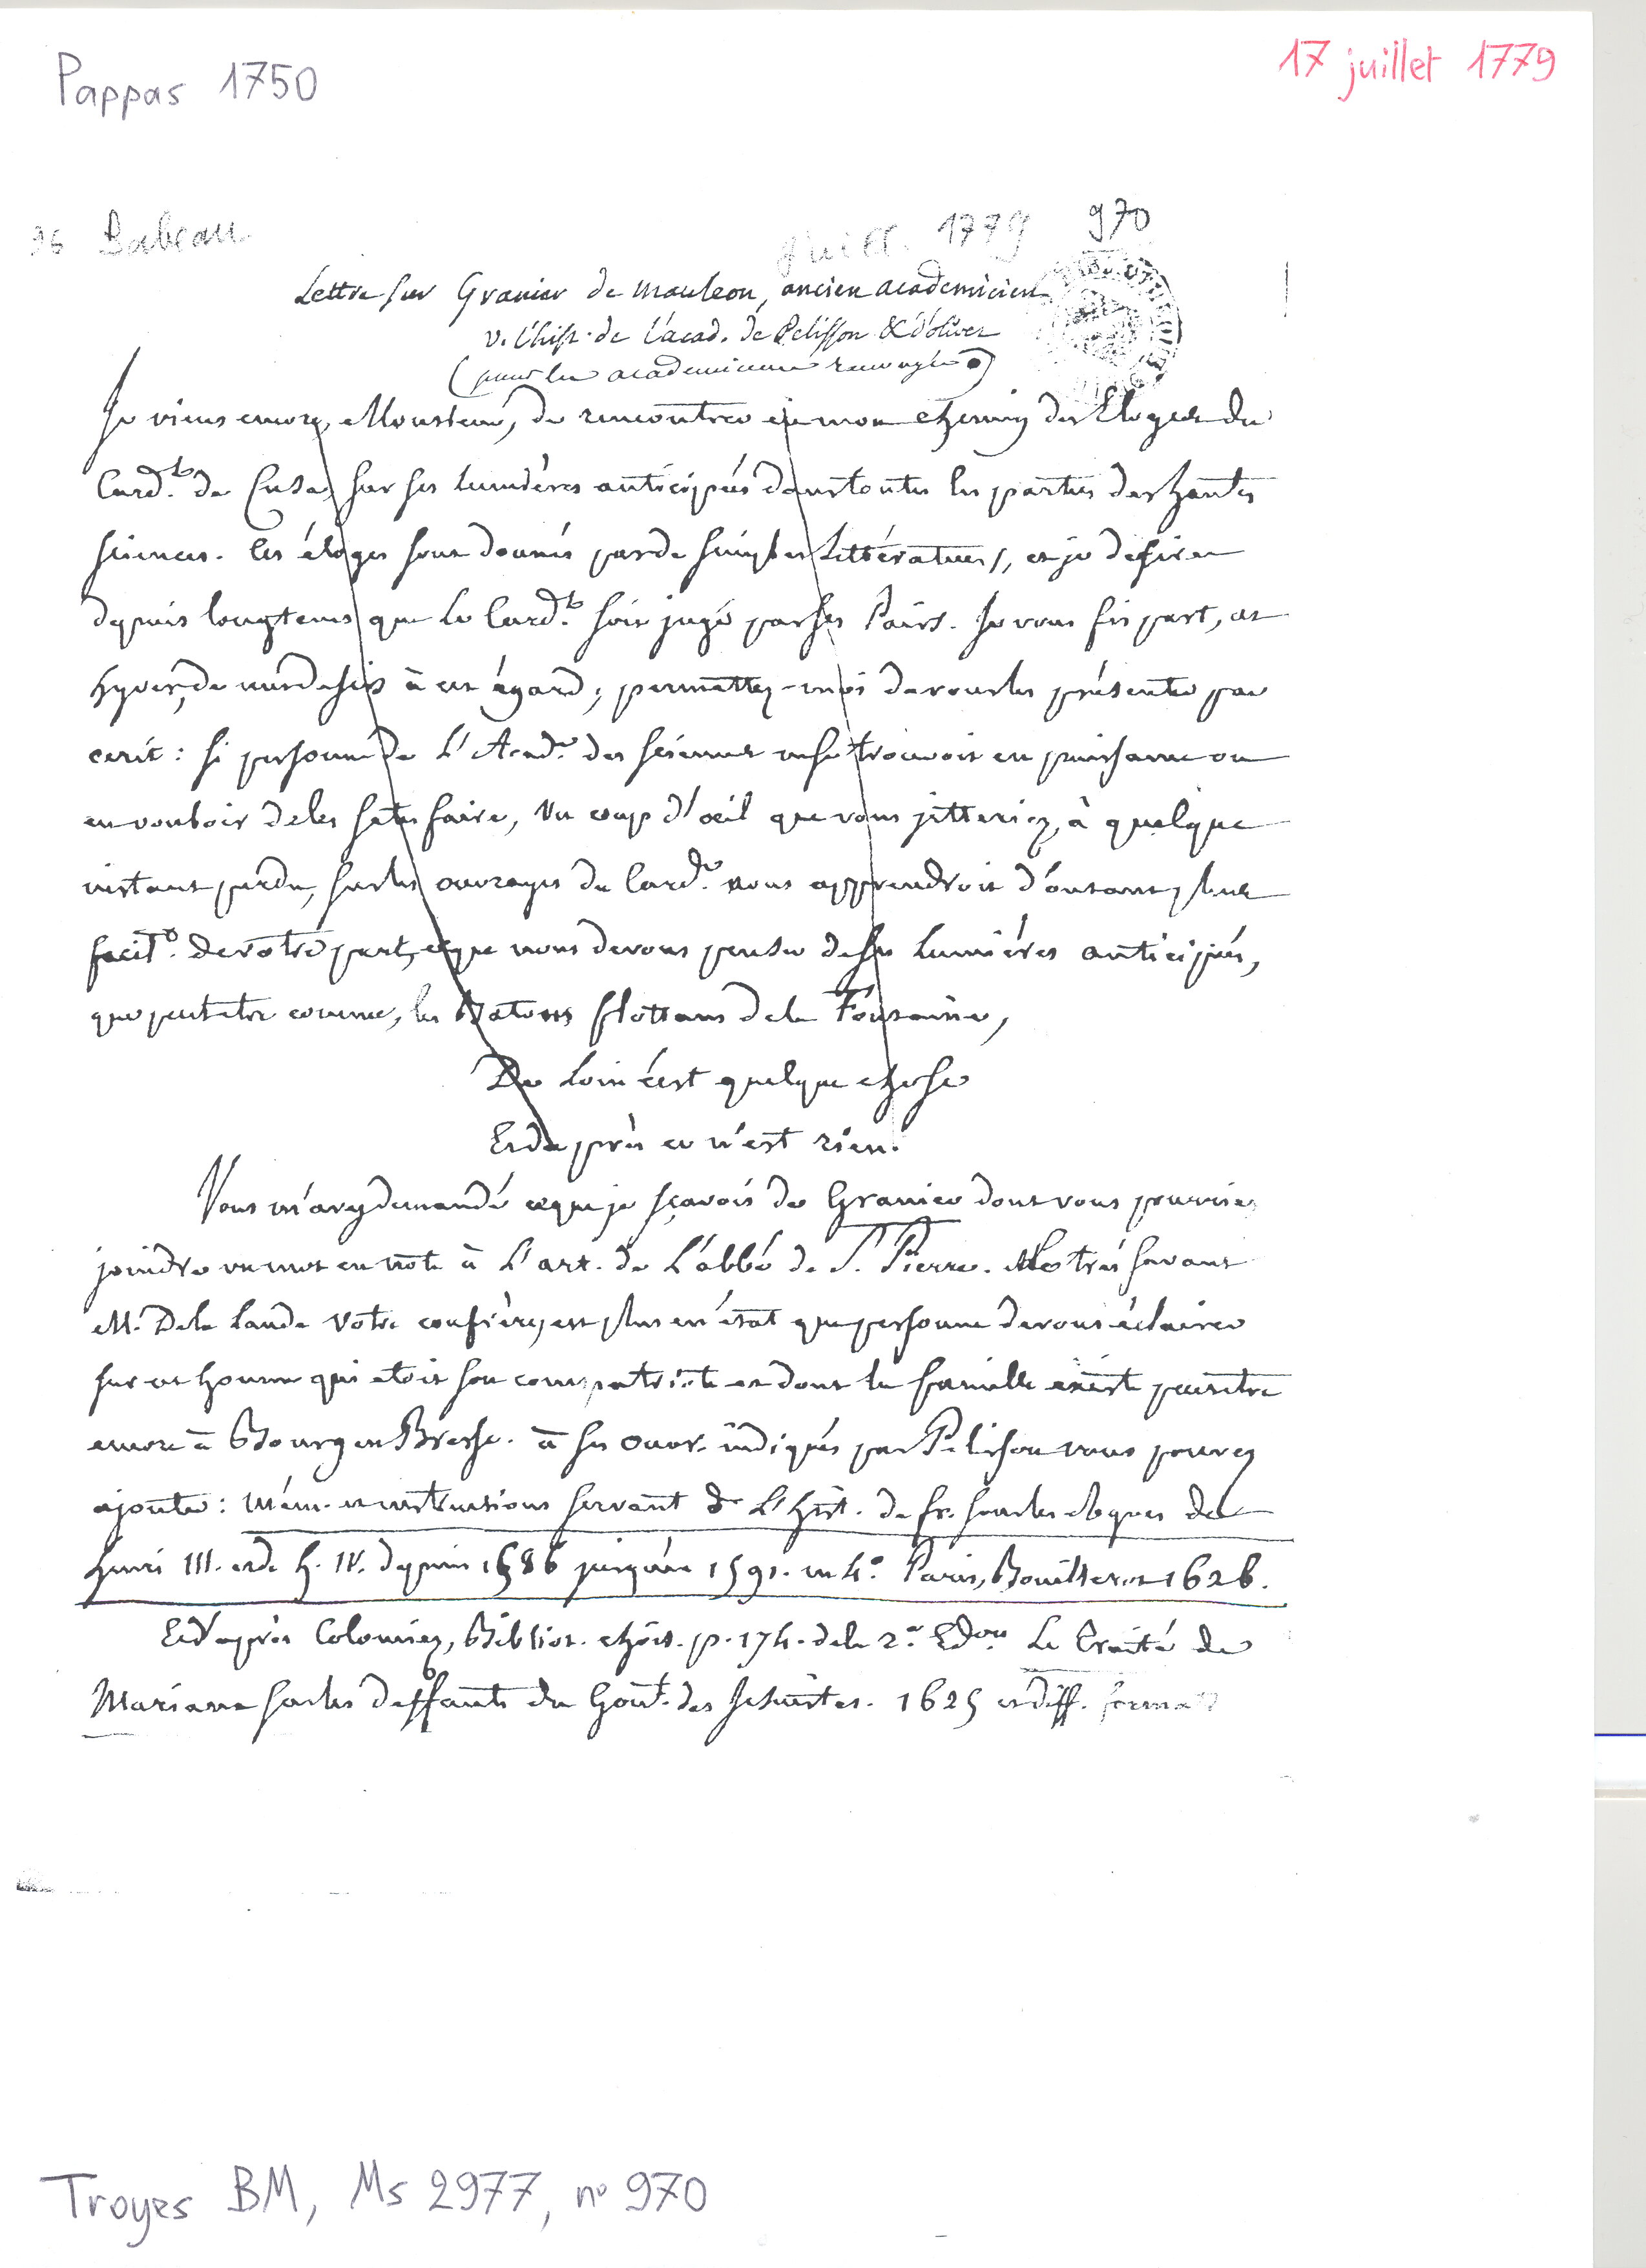 Pappas 1750
17 juillet 1779
96 Babeau
Juill. 1779 970
Lettre sur Granier de mauleon, ancien academicien
v. l'hist. de l'acad. de Pelisson & d'olivet
(pour les academiciens renvoyés)
Je viens encore, Monsieur, de rencontrer en mon chemin des Eloges du
Card.l de Cusa, sur ses lumières anticipées dans toutes les parties des hautes
sciences. Ces éloges sont donnés par de simples Littérateurs, et je desire
depuis longtems que le Card.l soit jugé par ses Pairs. Je vous fis part, cet
hyver, de mes desirs à cet égard; permettez-moi de vous les présenter par
ecrit: si personne de l'Acad.e des sciences ne se trouvoit en puissance ou
en vouloir de les satisfaire, un coup d'œil que vous jetteriez, à quelque
instant perdu, sur les ouvrages du Card.l nous apprendroit d'autant plus
facil.t de votre part, ce que nous devons penser de ses lumières anticipées,
que peutetre comme, les Batons flottans de la Fontaine,
De loin c'est quelque chose
Et de près ce n'est rien.
Vous m'avez demandé ce que je sçavois de Granier dont vous pourriez
joindre un mot en note à l'art. de l'abbé de S. Pierre. Le très savant
M. De la Lande votre confrère, est plus en état que personne de vous éclairer
sur cet homme qui etoit son compatriote et dont la famille existe peutetre
encore à Bourg en Bresse. à ses ouvr. indiqués par Pelisson vous pouvez
ajouter: Mém. et instructions servant à l'hist. de fr. sous les regnes de
henri III. et de h. IV. depuis 1586 jusqu'en 1591. in 4.o Paris, Bouillerot 1626.
Et d'après Colomiez, Biblioth. chois. p. 174. de la 2.e Ed.on Le Traité de
Mariana sur les deffauts du Gouv.t des Jesuites. 1625 et diff. formats
Troyes BM, Ms 2977, n° 970